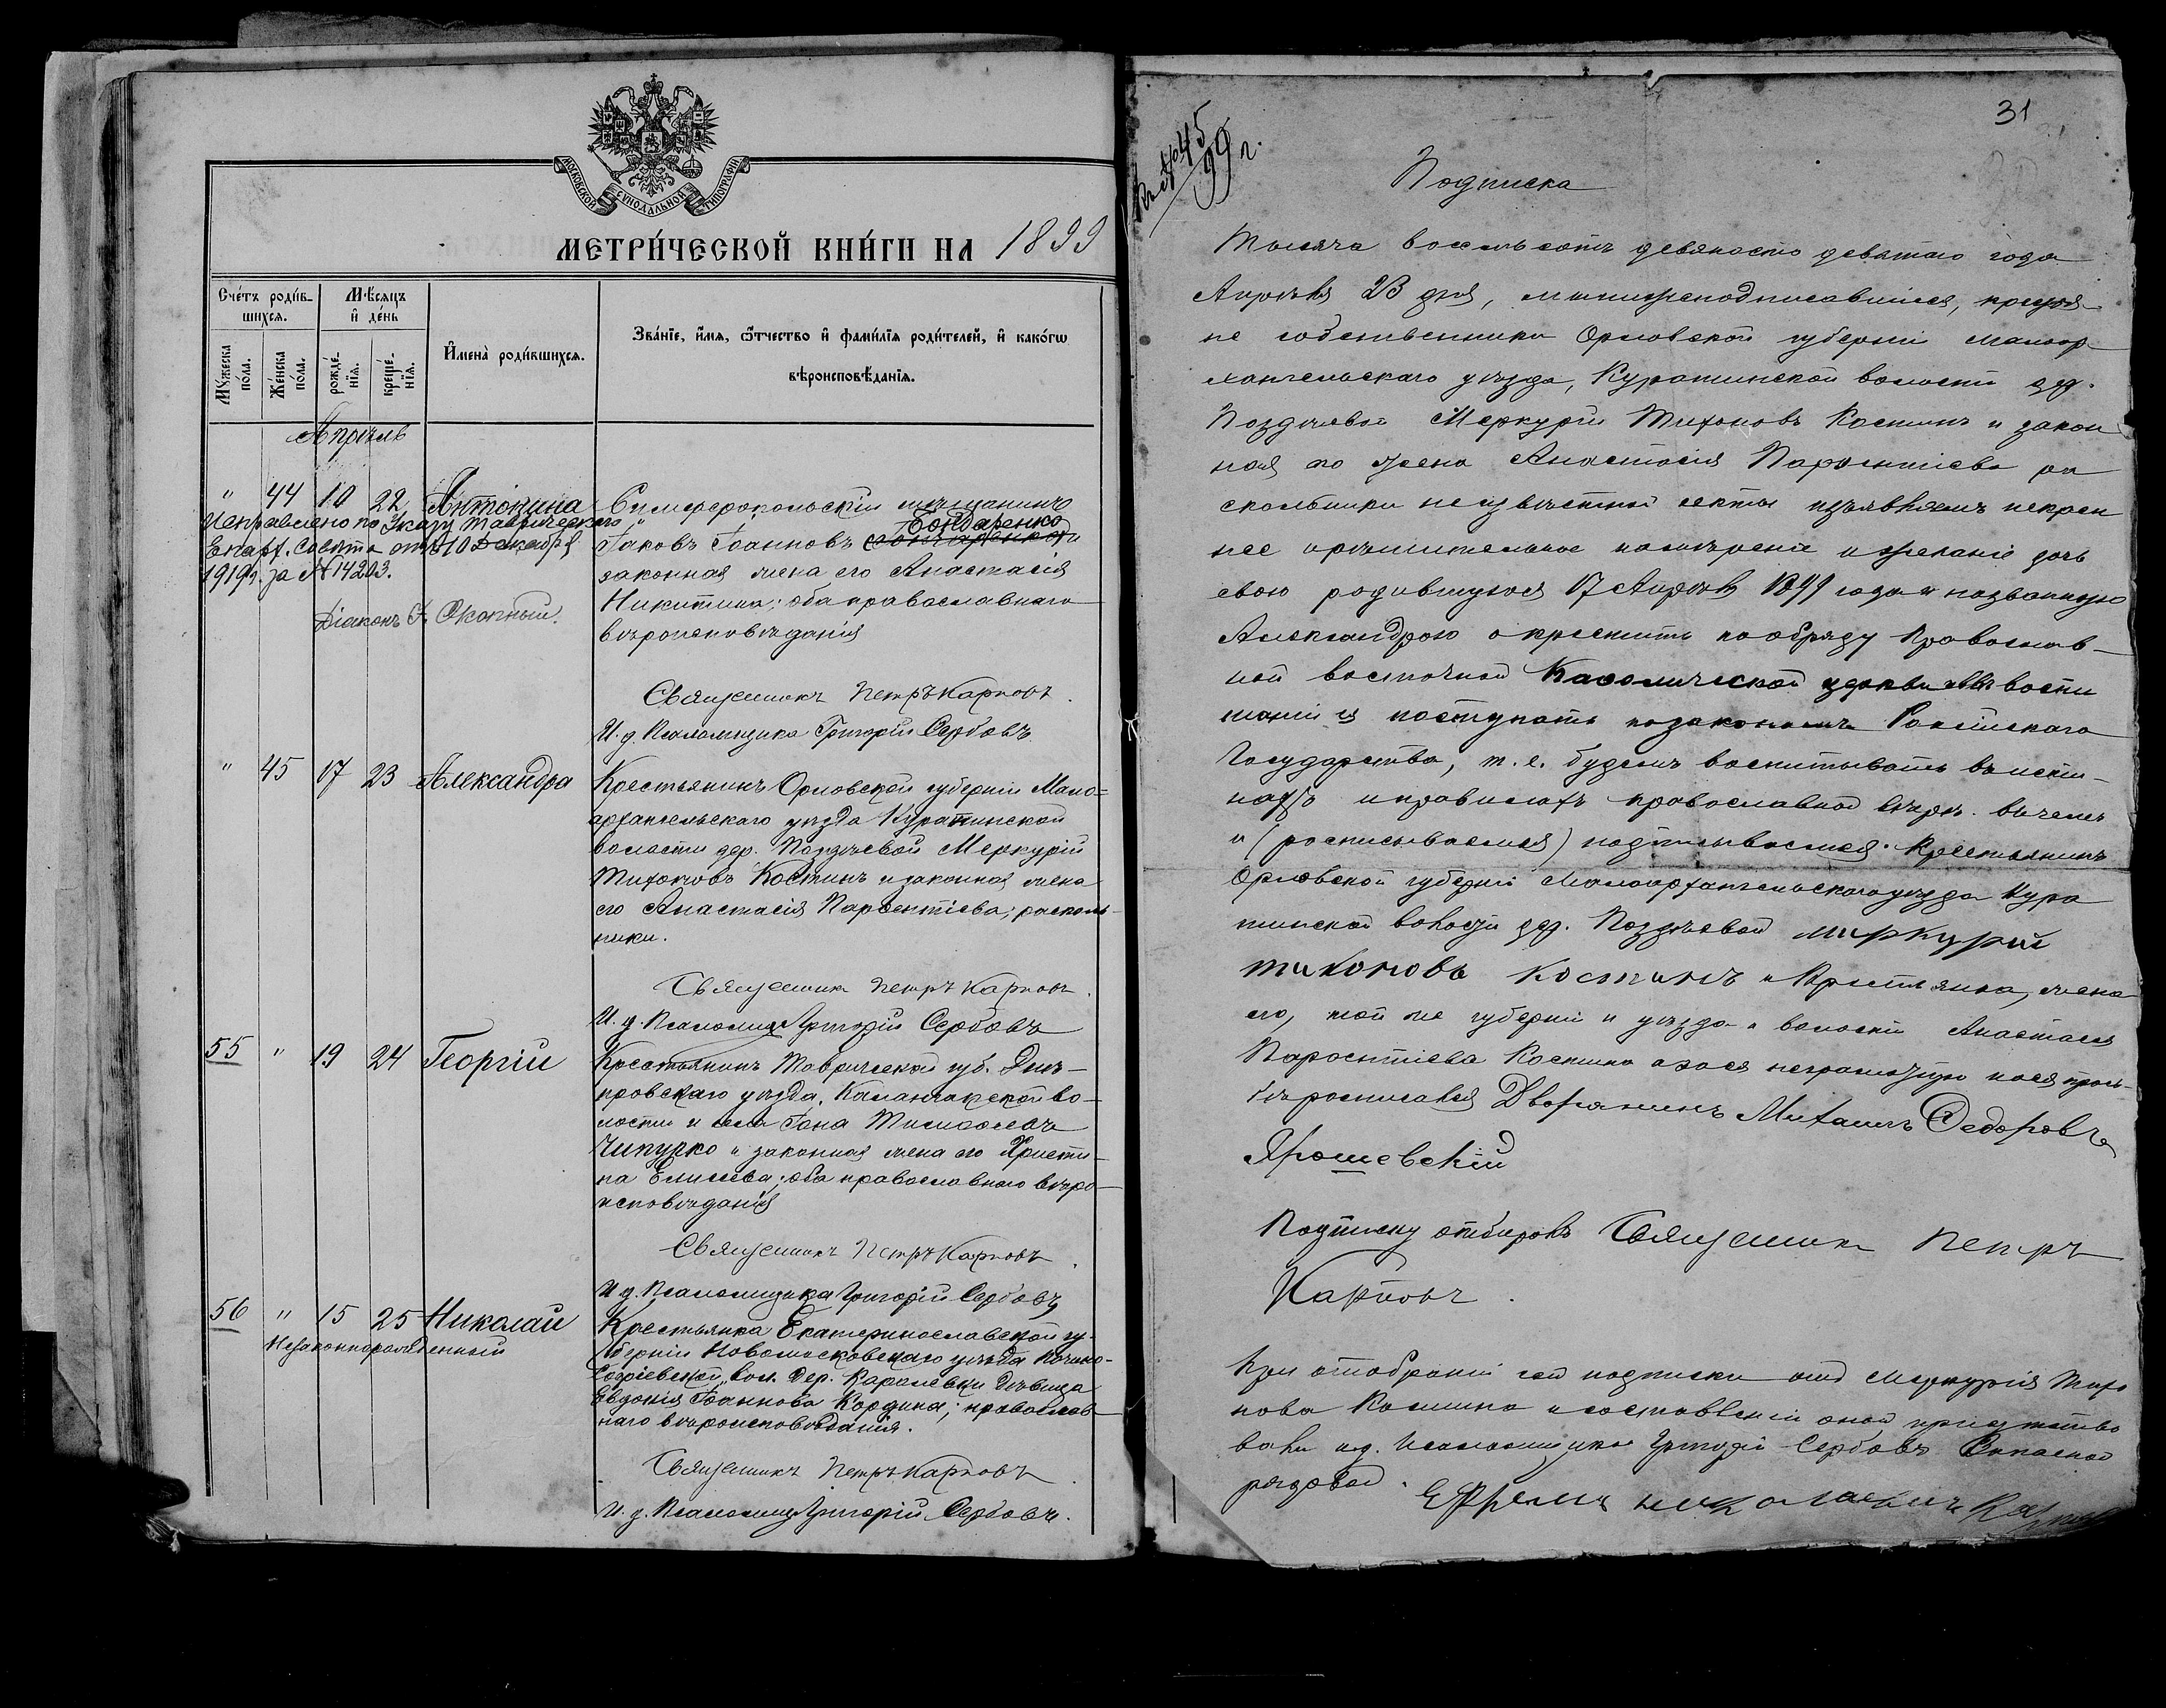 МОСКОВСКОЙ СѴНОДАЛЬНОЙ ТИПОГРАФІИ
МЕТРИ́ЧЕСКОЙ КНИ́ГИ НА 1899
Сче́тъ роди́в-
шихся.
Мꙋжеска по́ла.
Же́нска по́ла.
Мѣ́сяцъ
и҆ де́нь
рожде́-
нїѧ.
креще́-
нїѧ.
И҆мена̀ роди́вшихся.
Зва́нїе, и҆́мя, ѻ҆́тчество и҆ фами́лїя роди́телей, и҆ како́гѡ
вѣроисповѣ́данїя.
Апрѣль
" 44 10 22 Антонина
Исправлено по Указу Таврическаго
Епарх. Совѣта отъ 10 Декабря
1919 г. за № 14203.
Діаконъ Окопный.
Симферопольскій мѣщанинъ
Бондаренко
Іаковъ Іоанновъ Гончаренко и
законная жена его Анастасія
Никитина; оба православнаго
вѣроисповѣданія
Священникъ Петръ Карповъ.
И. д. Псаломщика Григорій Сербовъ
" 45 17 23 Александра
Крестьянинъ Орловской губерніи Мало=
архангельскаго уѣзда Куратинской
волости дер. Поздѣевой Меркурій
Тихоновъ Костинъ и законная жена
его Анастасія Парѳентіева; расколь-
ники.
Священникъ Петръ Карповъ.
И. д. Псаломщ. Григорій Сербовъ
55 " 19 24 Георгій
Крестьянинъ Таврической губ. Днѣ-
провскаго уѣзда, Каланчакской во-
лости и села Іона Тимоѳеевъ
Чипурко и законная жена его Христи-
на Елисеева; оба православнаго вѣро-
исповѣданія
Священникъ Петръ Карповъ.
И. д. Псаломщика Григорій Сербовъ
56 " 15 25 Николай
Незаконнорожденный
Крестьянка Екатеринославской гу-
берніи Новомосковскаго уѣзда
Софіевской вол. дер. Каролевки дѣвица
Евдокія Іоаннова Кордина; православ-
наго вѣроисповѣданія.
Священникъ Петръ Карповъ.
И. д. Псаломщ. Григорій Сербовъ.
31
Къ № 45
99 г.
Подписка
Тысяча восемьсотъ девяносто девятаго года
Апрѣля 23 дня, мы нижеподписавшіеся, крестья-
не собственники Орловской губерніи Малоар-
хангельскаго уѣзда, Куратинской волости дер.
Поздѣевой Меркурій Тихоновъ Костинъ и закон
ная его жена Анастасія Парѳентіева ра
скольники неизвѣстной секты изъявляемъ искрен
нее и рѣшительное намѣреніе и желаніе дочь
свою родившуюся 17 Апрѣля 1899 года и названную
Александрою окрестить по обряду Православ-
ной восточной Каѳолической церкви и въ воспи
таніи ея поступать по законамъ Россійскаго
Государства, т. е. будемъ воспитывать въ исти-
нахъ и правилахъ православной вѣры. въ чемъ
и (росписываемся) подписываемся. Крестьянинъ
Орловской губерніи Малоархангельскаго уѣзда Кура
тинской волости дер. Поздѣевой Миркурий
тихоновъ Костинъ и Крестьянка, жена
его, той же губерніи и уѣзда и волости Анастасія
Парѳентіева Костина а за ея неграмотную по ея прось-
бѣ росписался Дворянинъ Михаилъ Ѳедоровъ
Ярошевскій
Подписку отбиралъ Священникъ Петръ
Карповъ.
При отобраніи сей подписки отъ Меркурія Тихо
нова Костина и составленіи оной присутство
вали и. д. Псаломщика Григорій Сербовъ Запасной
рядовой. Ефремъ николаевичъ